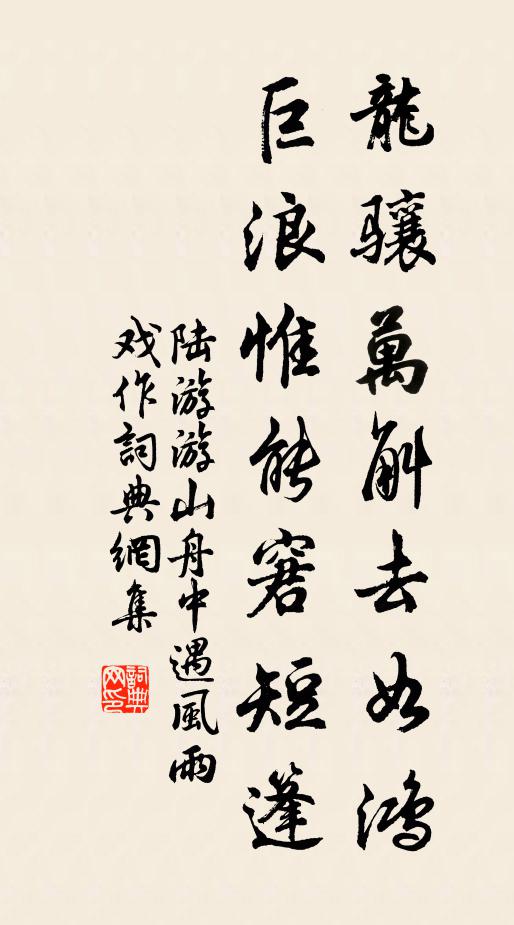 龍骧萬斛去如鴻
巨浪惟能窘短篷
陆游游山舟中遇風雨
戏作詞典網集
詞典网印